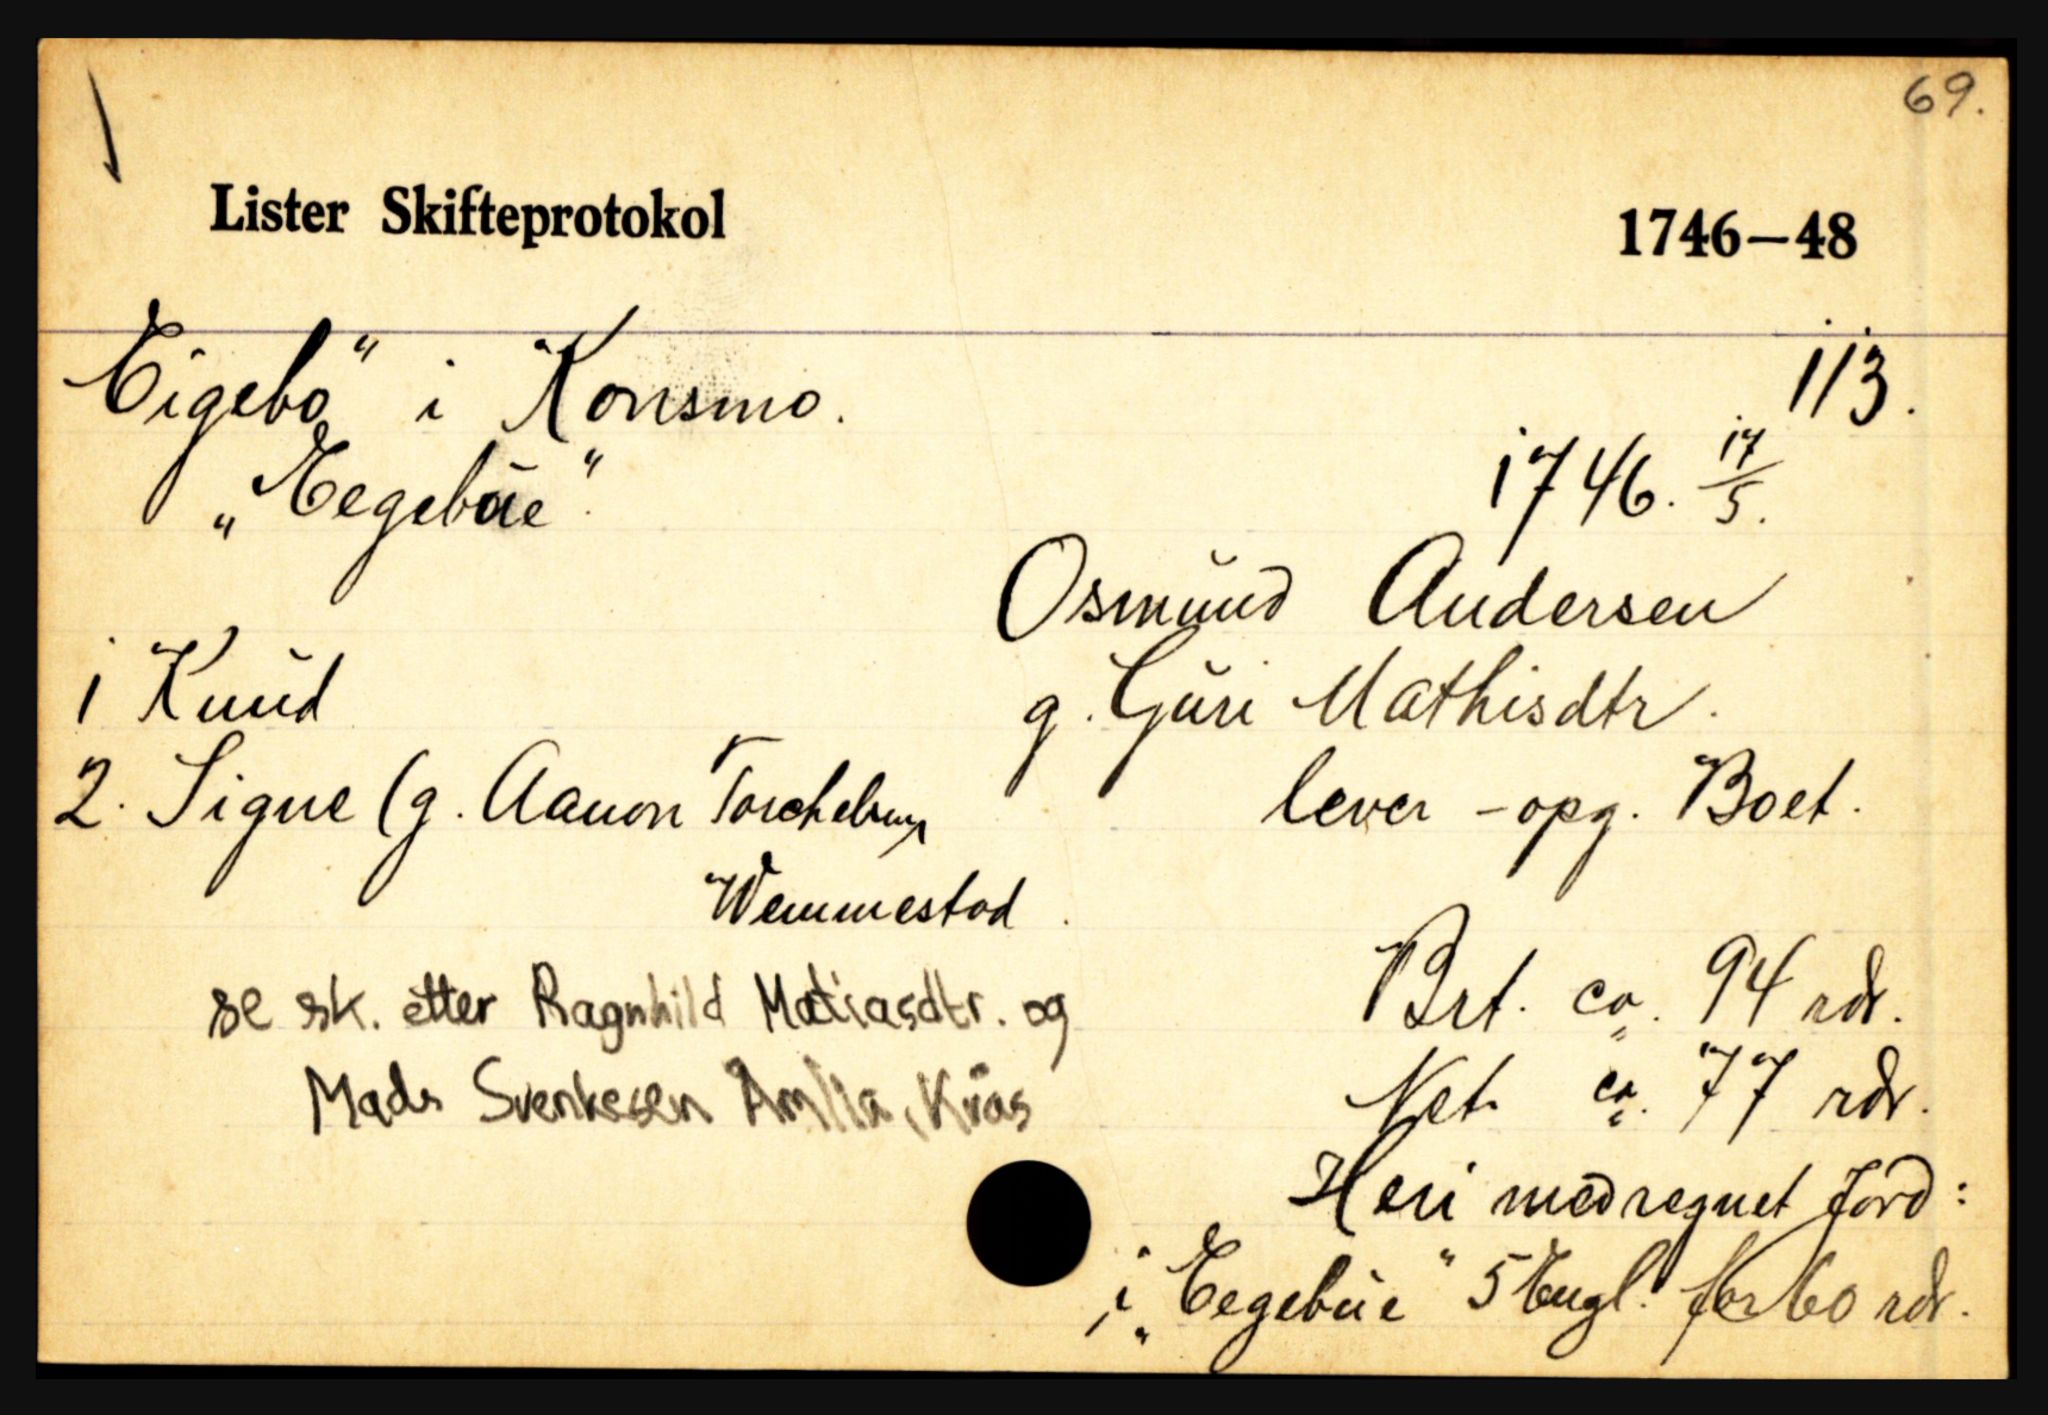 69.
Lister Skifteprotokol 1746—48
Eigebø" i Konsmo. 113.
„Eegebøe" 1746. 17/5.
Osmŭnd Andersen
1 Knŭd g. Gŭri Mathisdtr.
2. Signe (g. Aanon lever - opg. Boet.
Wemmestad.
Brt. ca. 94 rdr.
se sk. etter Ragnhild Matiasdtr. og
Net. ca. 77 rdr.
Mads Svenkesen Åmlia, Kvås
Heri medregnet Jord:
i „Eegebŭe" 5 Engl. for 60 rdr.